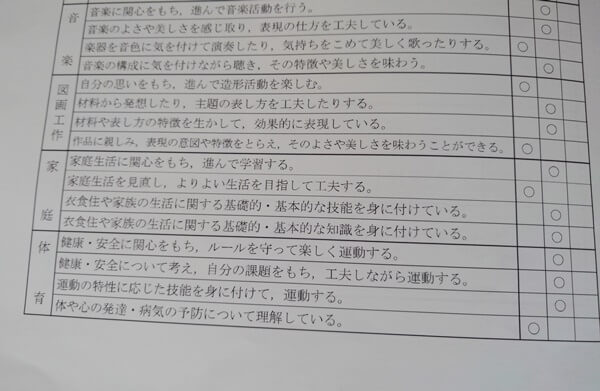 音楽
音楽に関心をもち，進んで音楽活動を行う。
音楽のよさや美しさを感じ取り，表現の仕方を工夫している。 ○
楽器を音色に気を付けて演奏したり，気持ちをこめて美しく歌ったりする。 ○
音楽の構成に気を付けながら聴き，その特徴や美しさを味わう。 ○
図画工作
自分の思いをもち，進んで造形活動を楽しむ。 ○
材料から発想したり，主題の表し方を工夫したりする。 ○
材料や表し方の特徴を生かして，効果的に表現している。 ○
作品に親しみ，表現の意図や特徴をとらえ，そのよさや美しさを味わうことができる。 ○
家庭
家庭生活に関心をもち，進んで学習する。 ○
家庭生活を見直し，よりよい生活を目指して工夫する。 ○
衣食住や家族の生活に関する基礎的・基本的な技能を身に付けている。 ○
衣食住や家族の生活に関する基礎的・基本的な知識を身に付けている。 ○
体育
健康・安全に関心をもち，ルールを守って楽しく運動する。 ○
健康・安全について考え，自分の課題をもち，工夫しながら運動する。 ○
運動の特性に応じた技能を身に付けて，運動する。 ○
体や心の発達・病気の予防について理解している。 ○